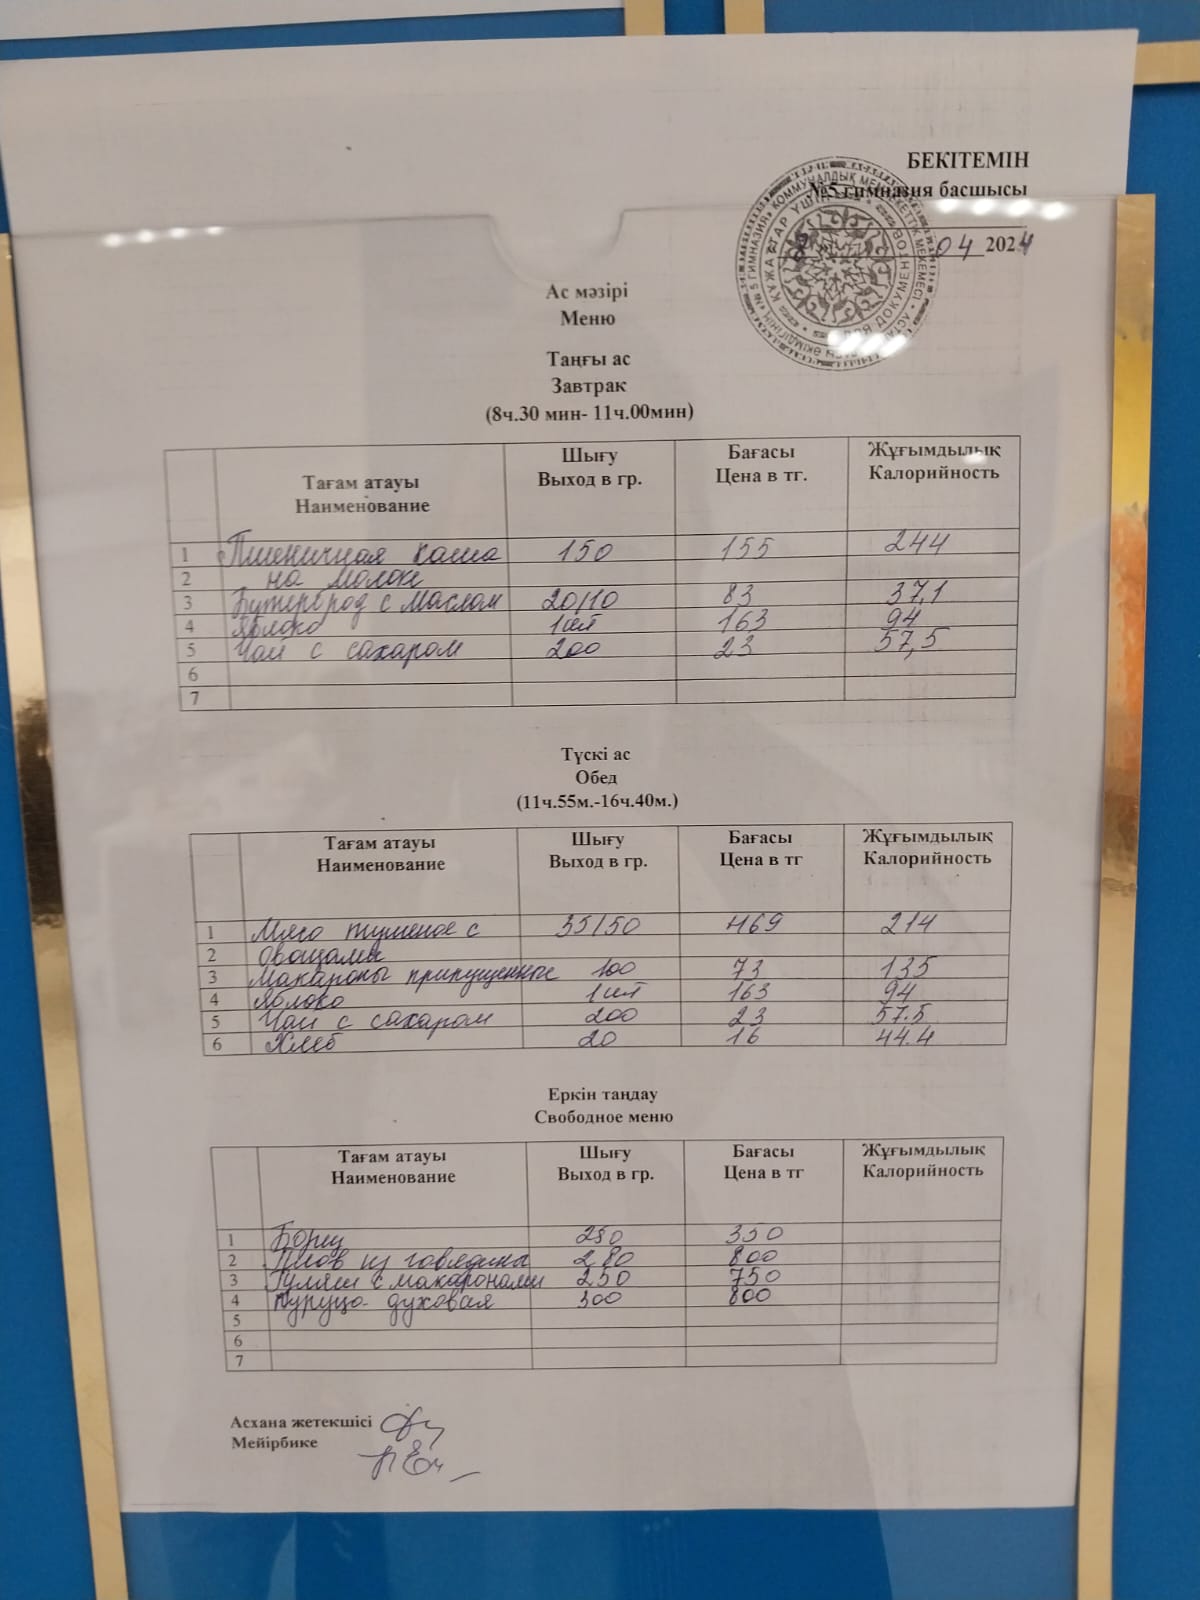 БЕКІТЕМІН
№5 гимназия басшысы
8 04 2024
Ас мәзірі
Меню
Таңғы ас
Завтрак
(8ч.30 мин- 11ч.00мин)
Тағам атауы Наименование Шығу Выход в гр. Бағасы Цена в тг. Жұғымдылық Калорийность
1 Пшеничная каша 150 155 244
2 на молоке
3 Бутерброд с маслом 20/10 83 37,1
4 Яблоко 1шт 163 94
5 Чай с сахаром 200 23 57,5
6
7
Түскі ас
Обед
(11ч.55м.-16ч.40м.)
Тағам атауы Наименование Шығу Выход в гр. Бағасы Цена в тг Жұғымдылық Калорийность
1 Мясо тушеное с 35/50 469 214
2 овощами
3 Макароны припущенные 100 73 135
4 Яблоко 1шт 163 94
5 Чай с сахаром 200 23 57.5
6 Хлеб 20 16 44.4
Еркін таңдау
Свободное меню
Тағам атауы Наименование Шығу Выход в гр. Бағасы Цена в тг Жұғымдылық Калорийность
1 Борщ 250 350
2 Плов из говядины 280 800
3 Гуляш с макаронами 250 750
4 Куруца духовая 300 800
5
6
7
Асхана жетекшісі
Мейірбике